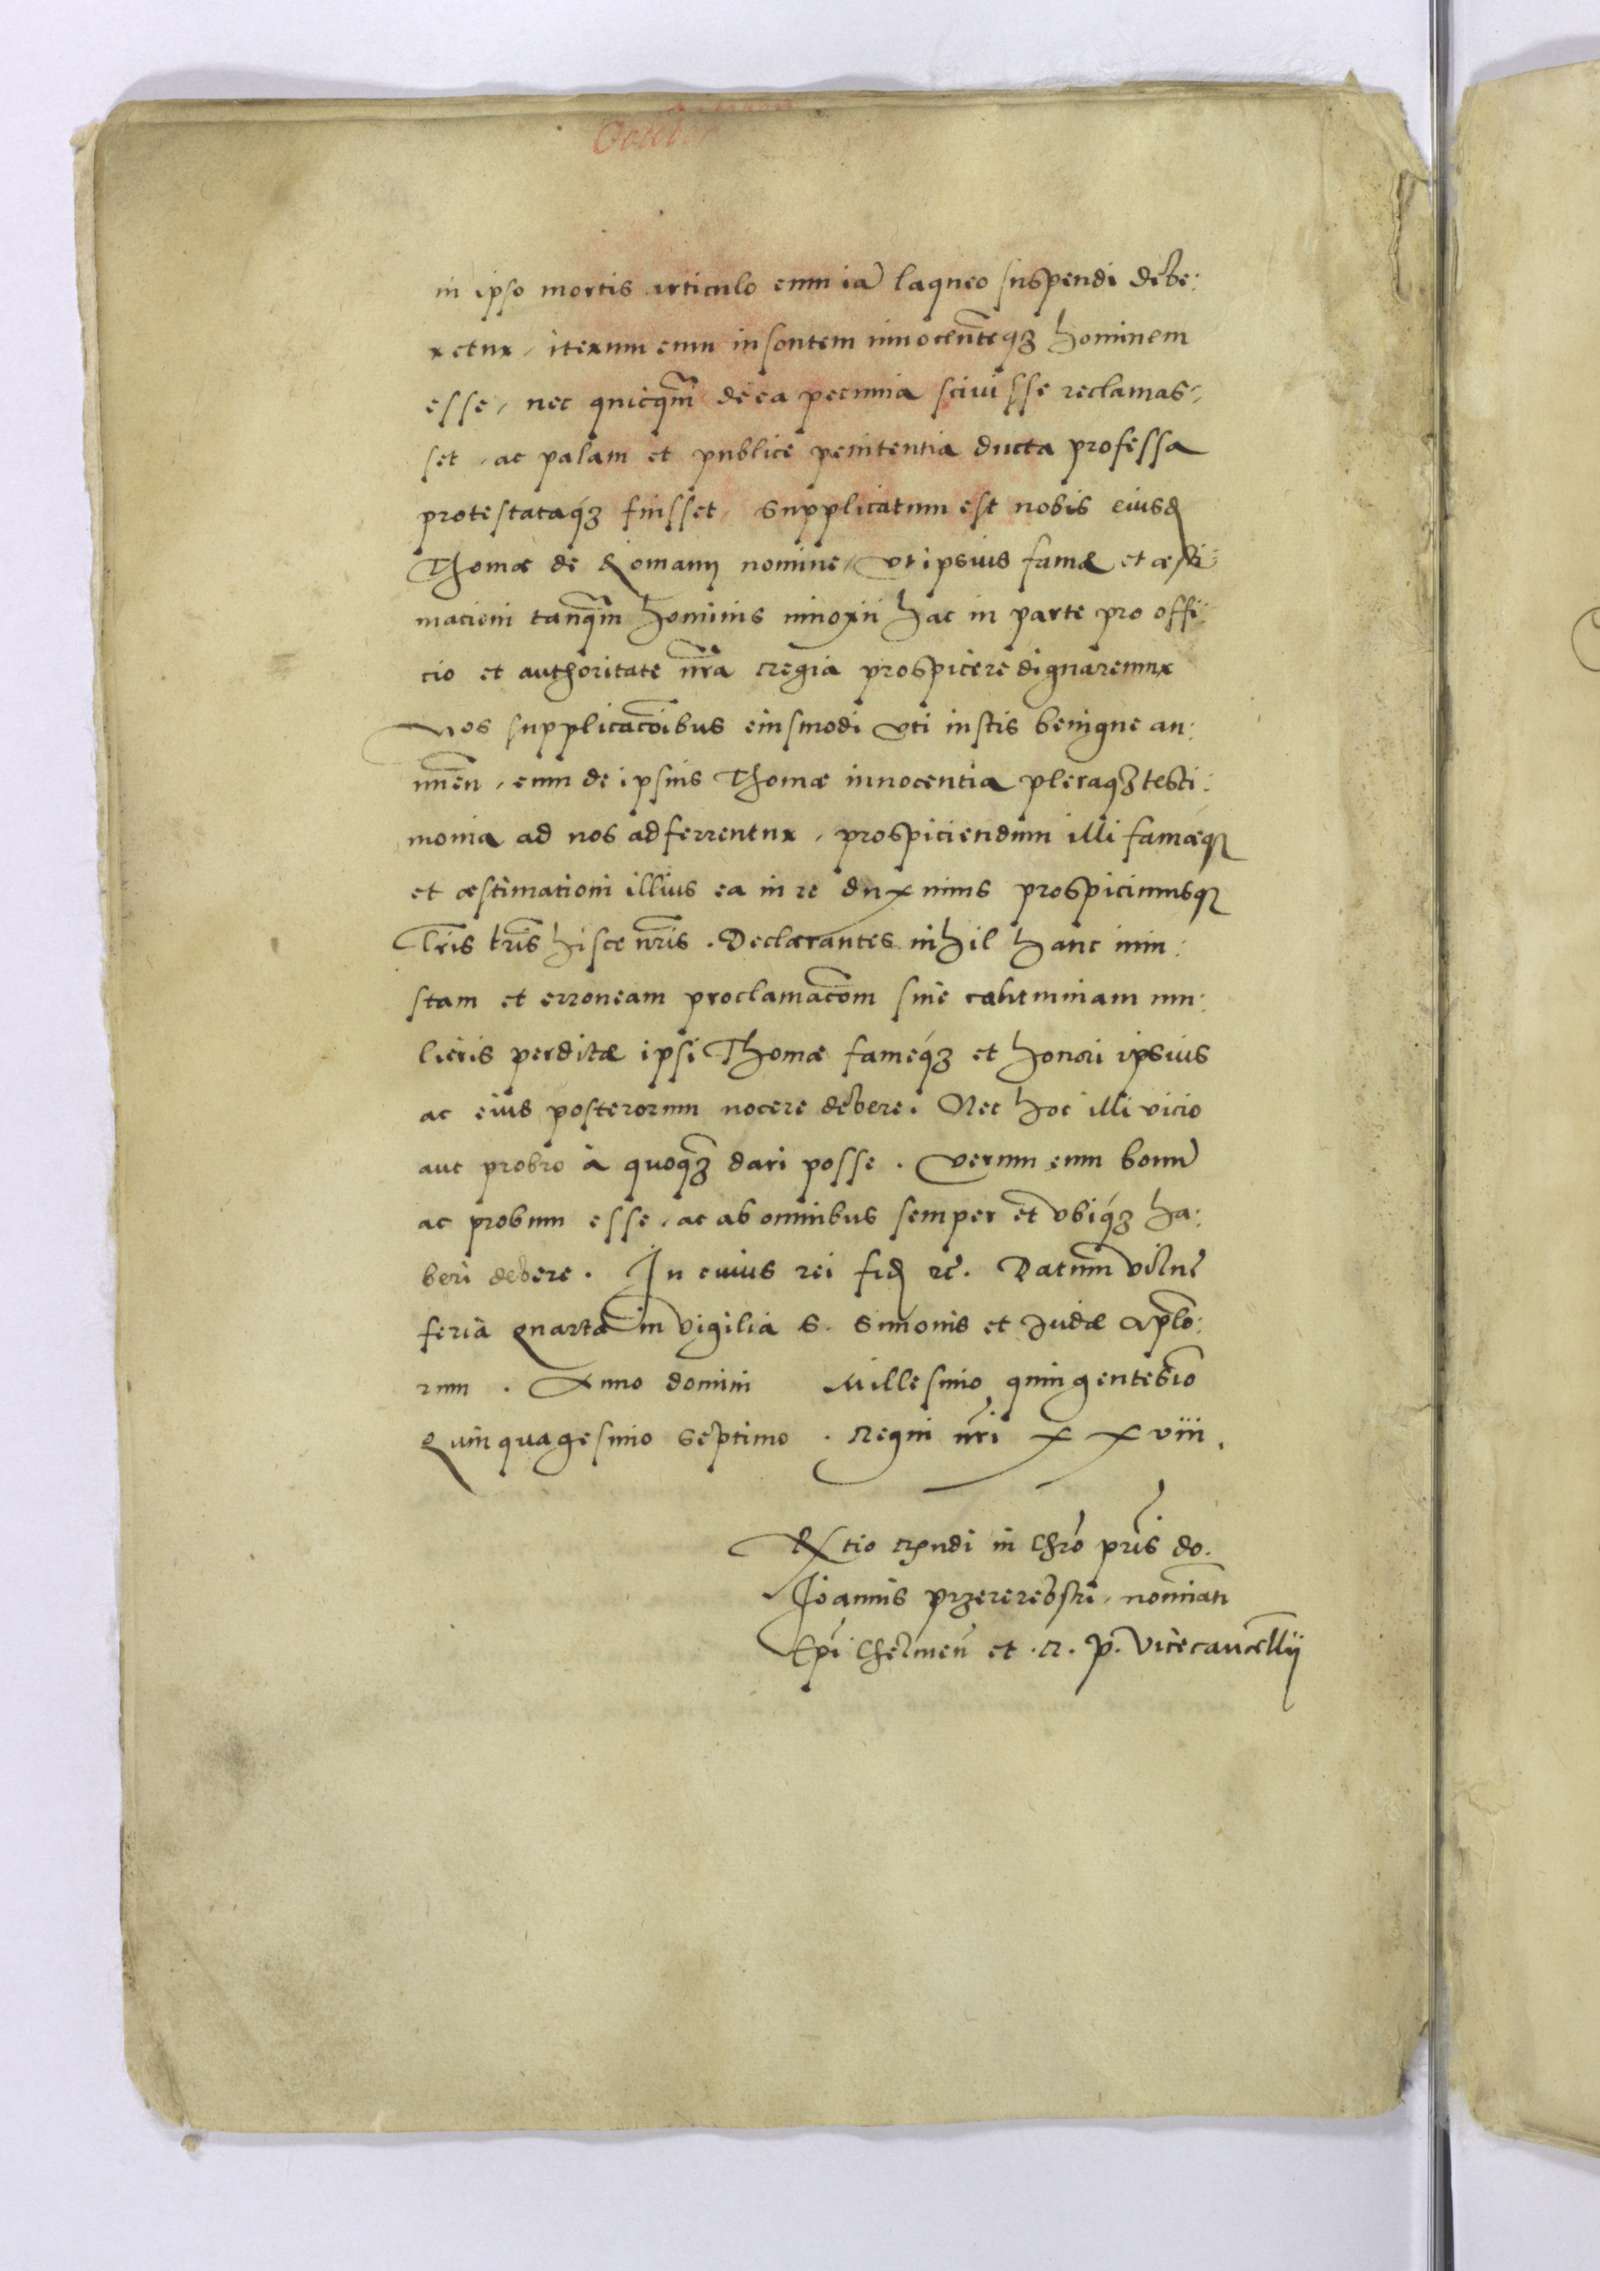 October
in ipso mortis articulo cum iā laqueo suspendi debe:
retur, iterum eum insontem innocentēqꝫ hominem
esse, nec quicqm̄ de ea pecunia sciuisse reclamas:
set, ac palam et publice penitentia ducta professa
protestataqꝫ fuisset, Supplicatum est nobis eiusd
Thomæ de nomine, vt ipsius famæ et æsti:
macioni tanqm̄ hominis innoxii hac in parte pro offi:
cio et authoritate nr̄a regia prospicere dignaremur
Nos supplicacōibus eiusmodi vti iustis benigne an:
nuen̄, cum de ipsius Thomæ innocentia pleraqꝫ testi:
monia ad nos adferrentur, prospiciendum illi famæqꝫ
et æstimationi illius ea in re duximus prospicimusqꝫ
Lr̄is hisce nr̄is. Declarantes nihil hanc iniu:
stam et erroneam proclamacōm siue calumniam mu:
lieris perditæ ipsi Thomæ fameqꝫ et honori ipsius
ac eius posterorum nocere debere. Nec hoc illi vicio
aut probro à quoqꝫ dari posse. Verum eum bonū
ac probum esse, ac ab omnibus semper et vbiqꝫ ha:
beri debere. In cuius rei fid rc̄. Datum Vilnę
feria Quarta in vigilia S. Simonis et Judæ Ap̄lo:
rum. Anno domini Millesimo quingentesīo
Quinquagesimo Septimo. Regni nr̄i XXviii.
Rctio Rxndi in Chrō pr̄is do.
Joannis Przerembski, nominati
Ep̄i Chelmen̄ et .R. P. Vicecancellii